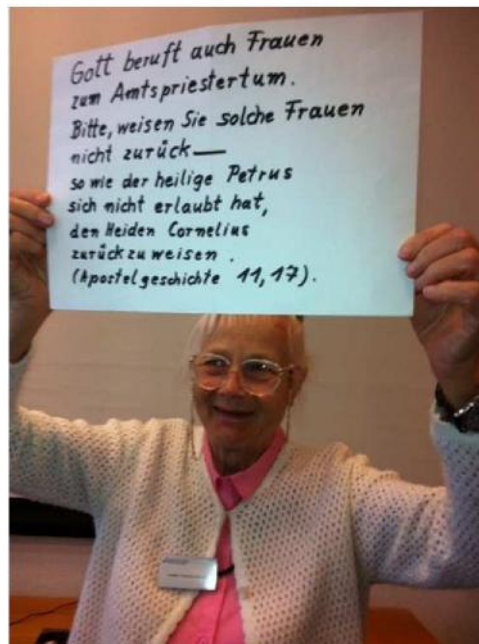 Gott beruft auch Frauen
zum Amtspriestertum.
Bitte, weisen Sie solche Frauen
nicht zurück —
so wie der heilige Petrus
sich nicht erlaubt hat,
den Heiden Cornelius
zurückzuweisen.
(Apostelgeschichte 11,17).